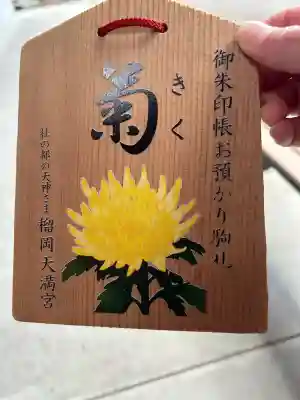 御朱印帳お預かり駒札
菊
きく
杜の都の天神さま
榴岡天満宮